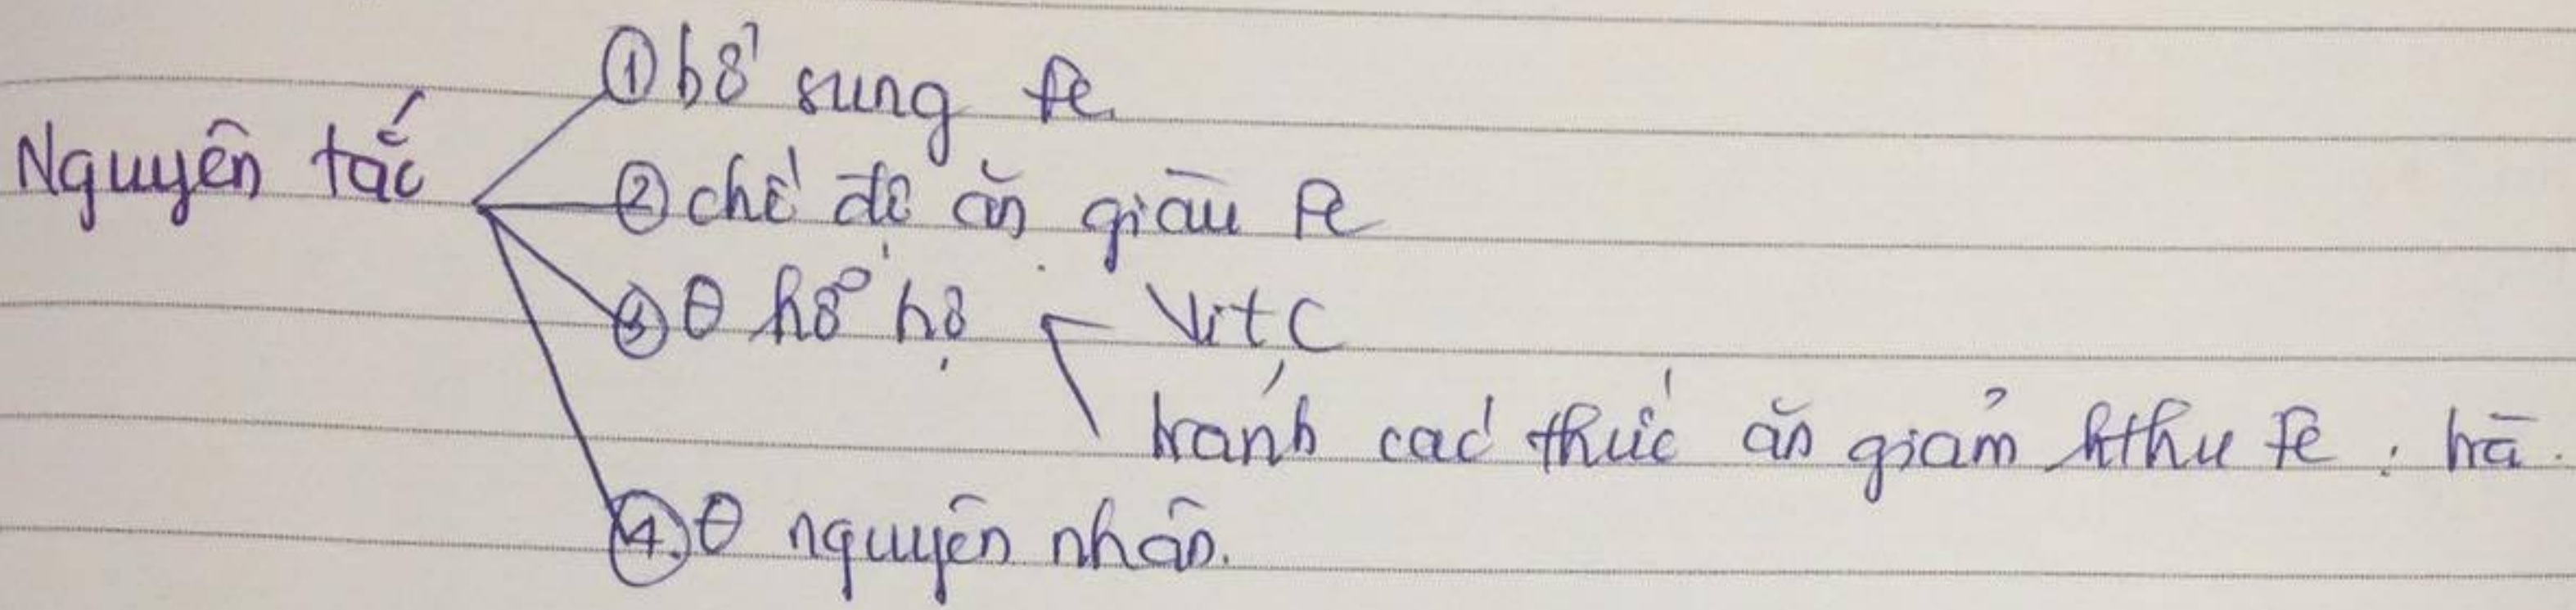 ① bổ sung Fe
Nguyên tắc
② chế độ ăn giàu Fe
③ θ hỗ trợ
Vit C
tránh các thức ăn giảm hthu Fe : trà.
④. θ nguyên nhân.